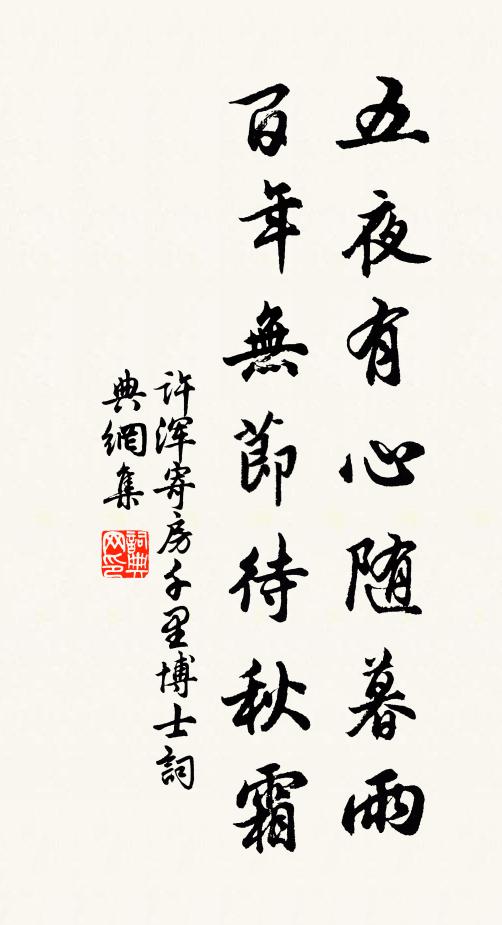 五夜有心随暮雨
百年無節待秋霜
许渾寄房千里博士詞
典網集
詞典网印